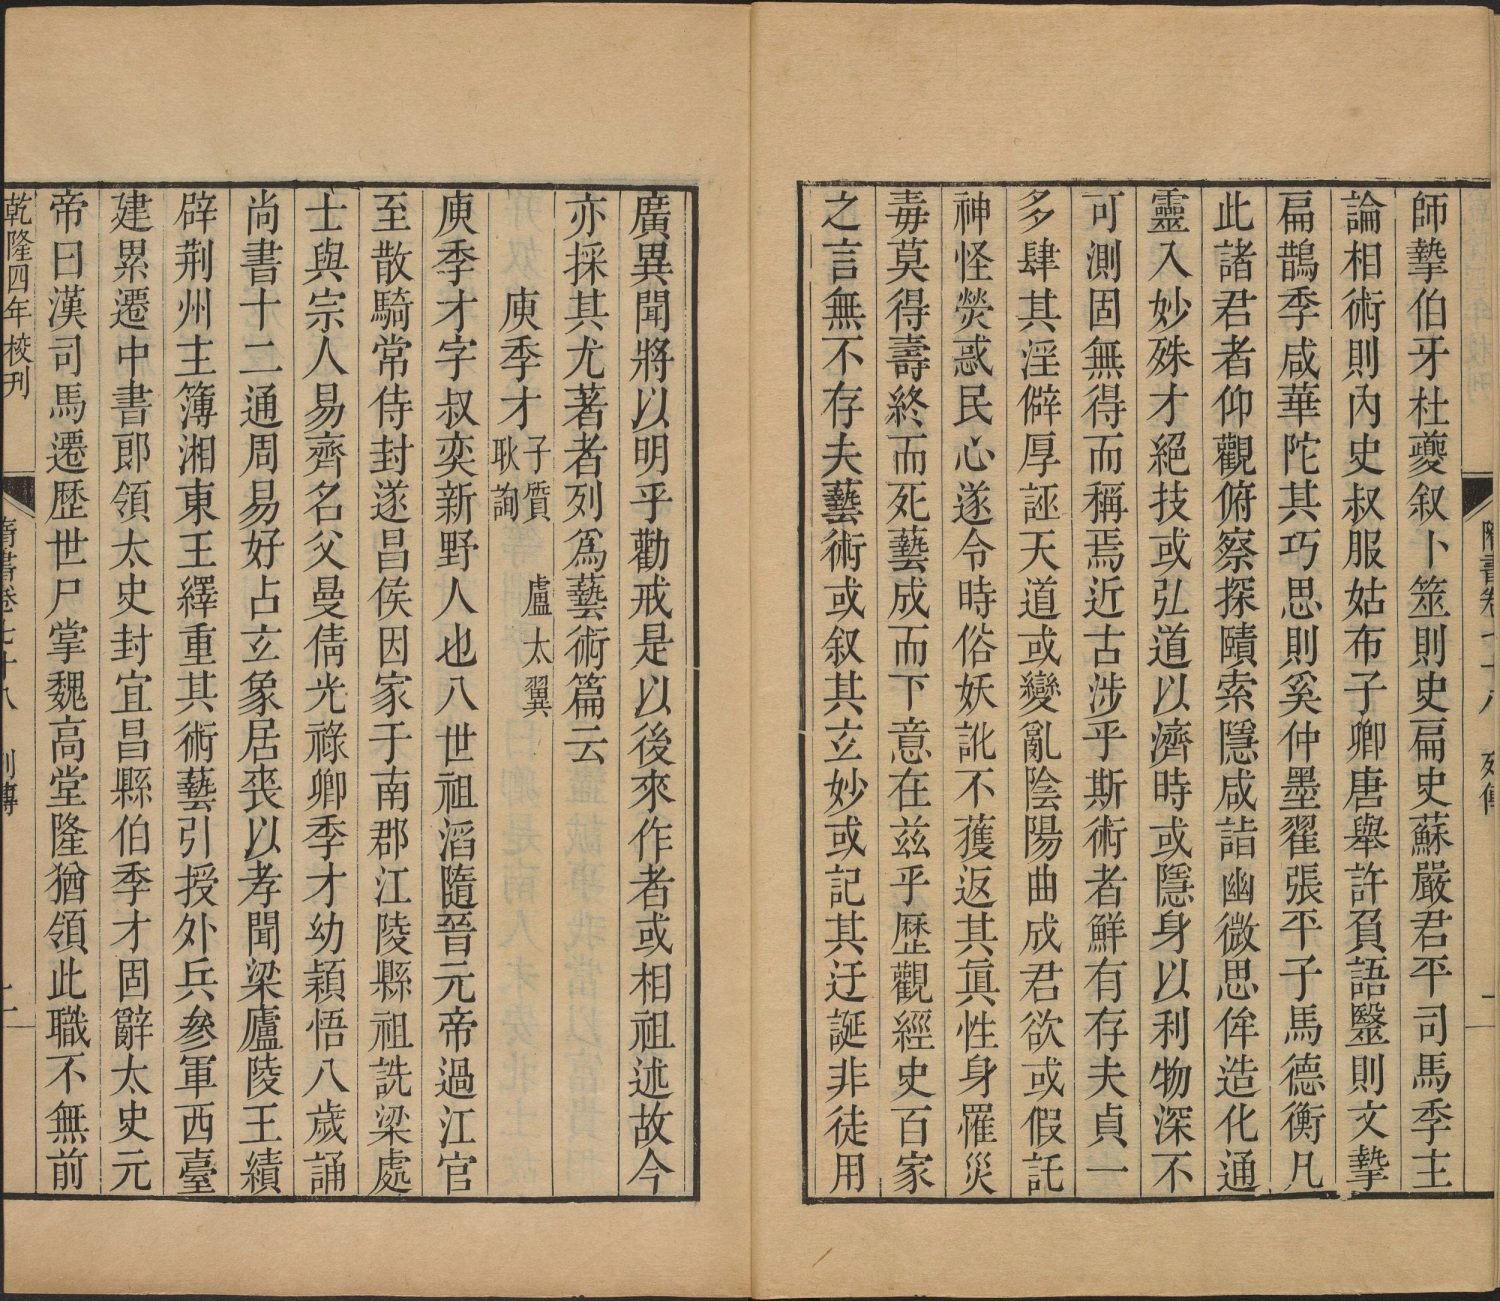 師摯伯牙杜夔叙卜筮則史扁史蘇嚴君平司馬季主
論相術則內史叔服姑布子卿唐舉許負語毉則文摯
扁鵲季咸華陀其巧思則奚仲墨翟張平子馬德衡凡
此諸君者仰觀俯察探賾索隱咸詣幽微思侔造化通
靈入妙殊才絕技或弘道以濟時或隱身以利物深不
可測固無得而稱焉近古涉乎斯術者鮮有存夫貞一
多肆其淫僻厚誣天道或變亂陰陽曲成君欲或假託
神怪熒惑民心遂令時俗妖訛不獲返其眞性身罹災
毒莫得壽終而死藝成而下意在茲乎歷觀經史百家
之言無不存夫藝術或叙其玄妙或記其迂誕非徒用
廣異聞將以明乎勸戒是以後來作者或相祖述故今
亦採其尤著者列爲藝術篇云
庾季才 子質 盧太翼
耿詢
庾季才字叔奕新野人也八世祖滔隨晉元帝過江官
至散騎常侍封遂昌侯因家于南郡江陵縣祖詵梁處
士與宗人易齊名父曼倩光祿卿季才幼穎悟八歲誦
尚書十二通周易好占玄象居喪以孝聞梁廬陵王績
辟荆州主簿湘東王繹重其術藝引授外兵參軍西臺
建累遷中書郞領太史封宜昌縣伯季才固辭太史元
帝曰漢司馬遷歷世尸掌魏高堂隆猶領此職不無前
乾隆四年校刊
隋書卷七十八 列傳